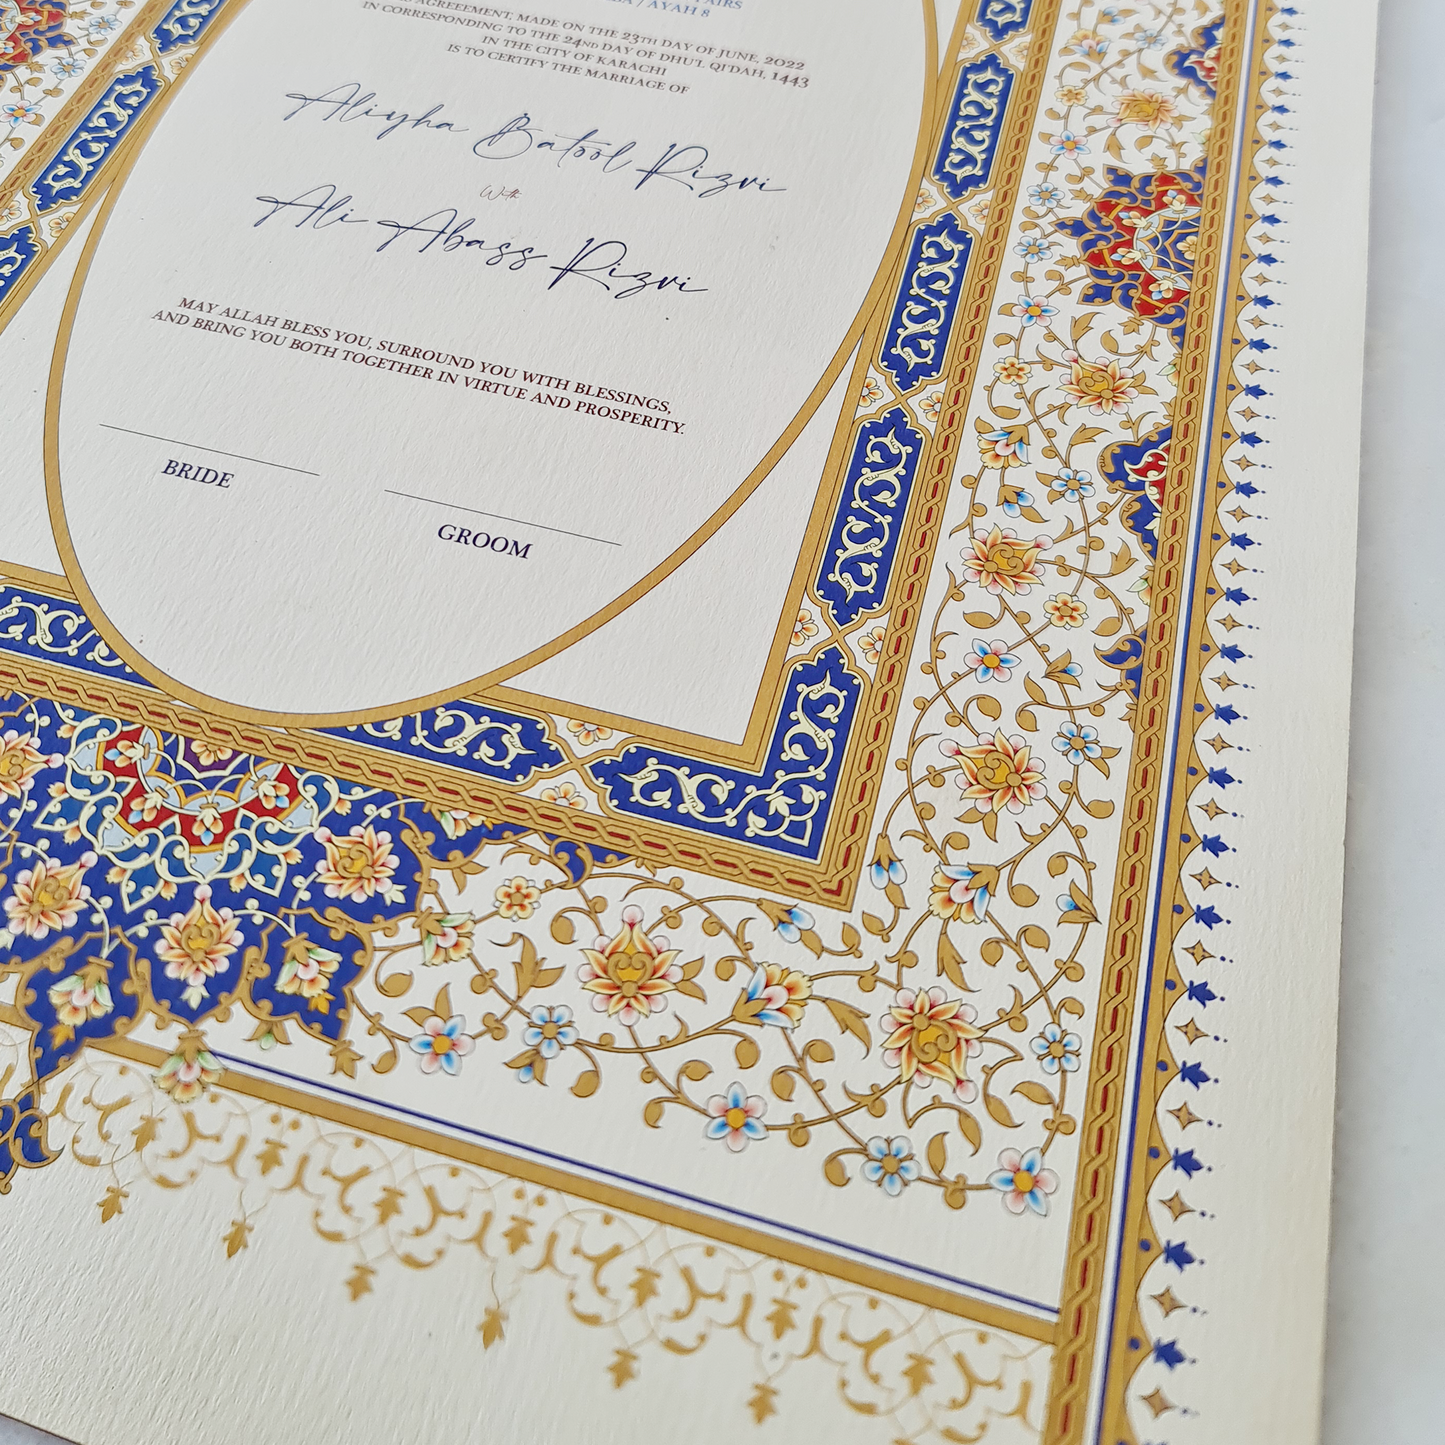 AIRS
BA / AYAH 8
AGREEEMENT, MADE ON THE 23TH DAY OF JUNE, 2022
IN CORRESPONDING TO THE 24ND DAY OF DHU'L QI'DAH, 1443
IN THE CITY OF KARACHI
IS TO CERTIFY THE MARRIAGE OF
Aliyha Batool Rizvi
With
Ali Abass Rizvi
MAY ALLAH BLESS YOU, SURROUND YOU WITH BLESSINGS,
AND BRING YOU BOTH TOGETHER IN VIRTUE AND PROSPERITY.
BRIDE
GROOM